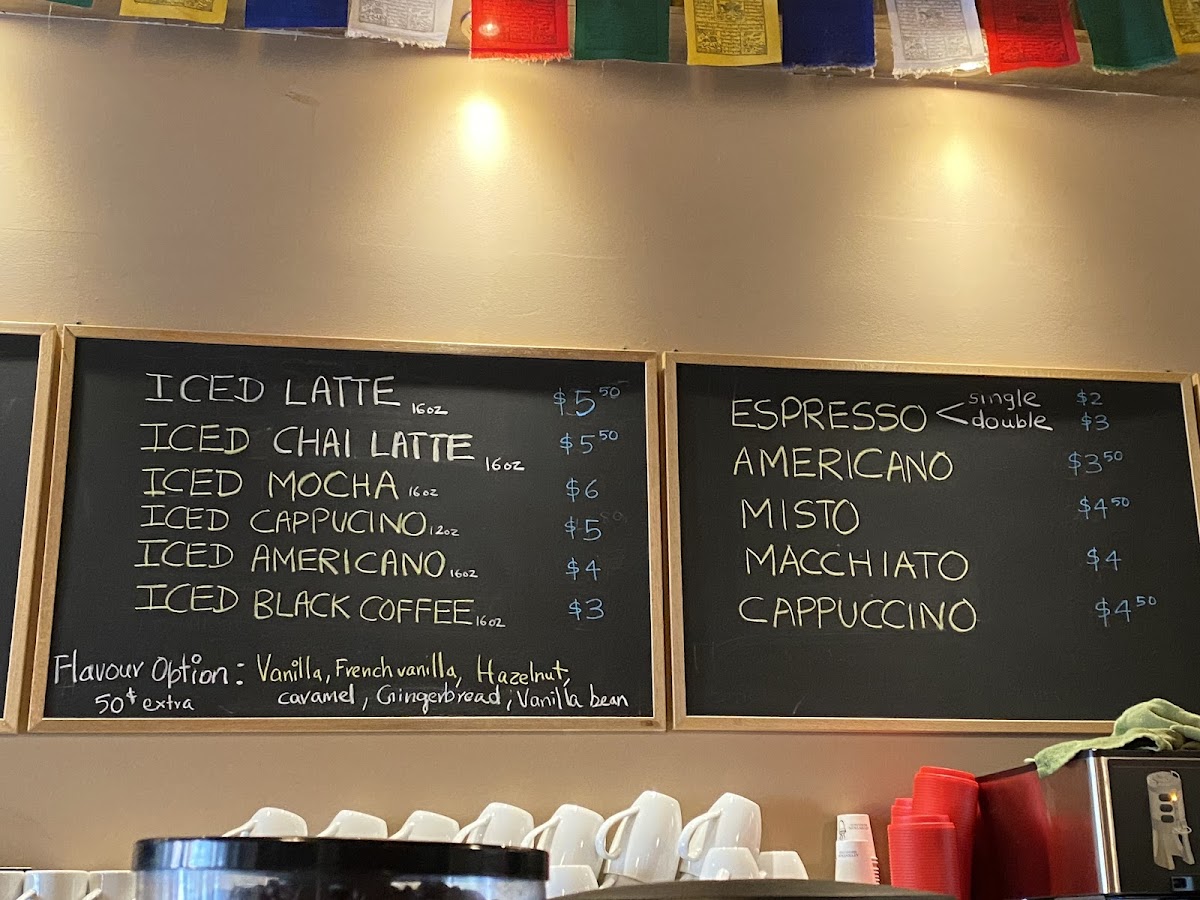 ICED LATTE 16oz $5 50
ICED CHAI LATTE 16oz $5 50
ICED MOCHA 16oz $6
ICED CAPPUCINO 12oz $5
ICED AMERICANO 16oz $4
ICED BLACK COFFEE 16oz $3
Flavour Option: Vanilla, French vanilla, Hazelnut,
50¢ extra caramel, Gingerbread, Vanilla bean
ESPRESSO < single $2
double $3
AMERICANO $3 50
MISTO $4 50
MACCHIATO $4
CAPPUCCINO $4 50